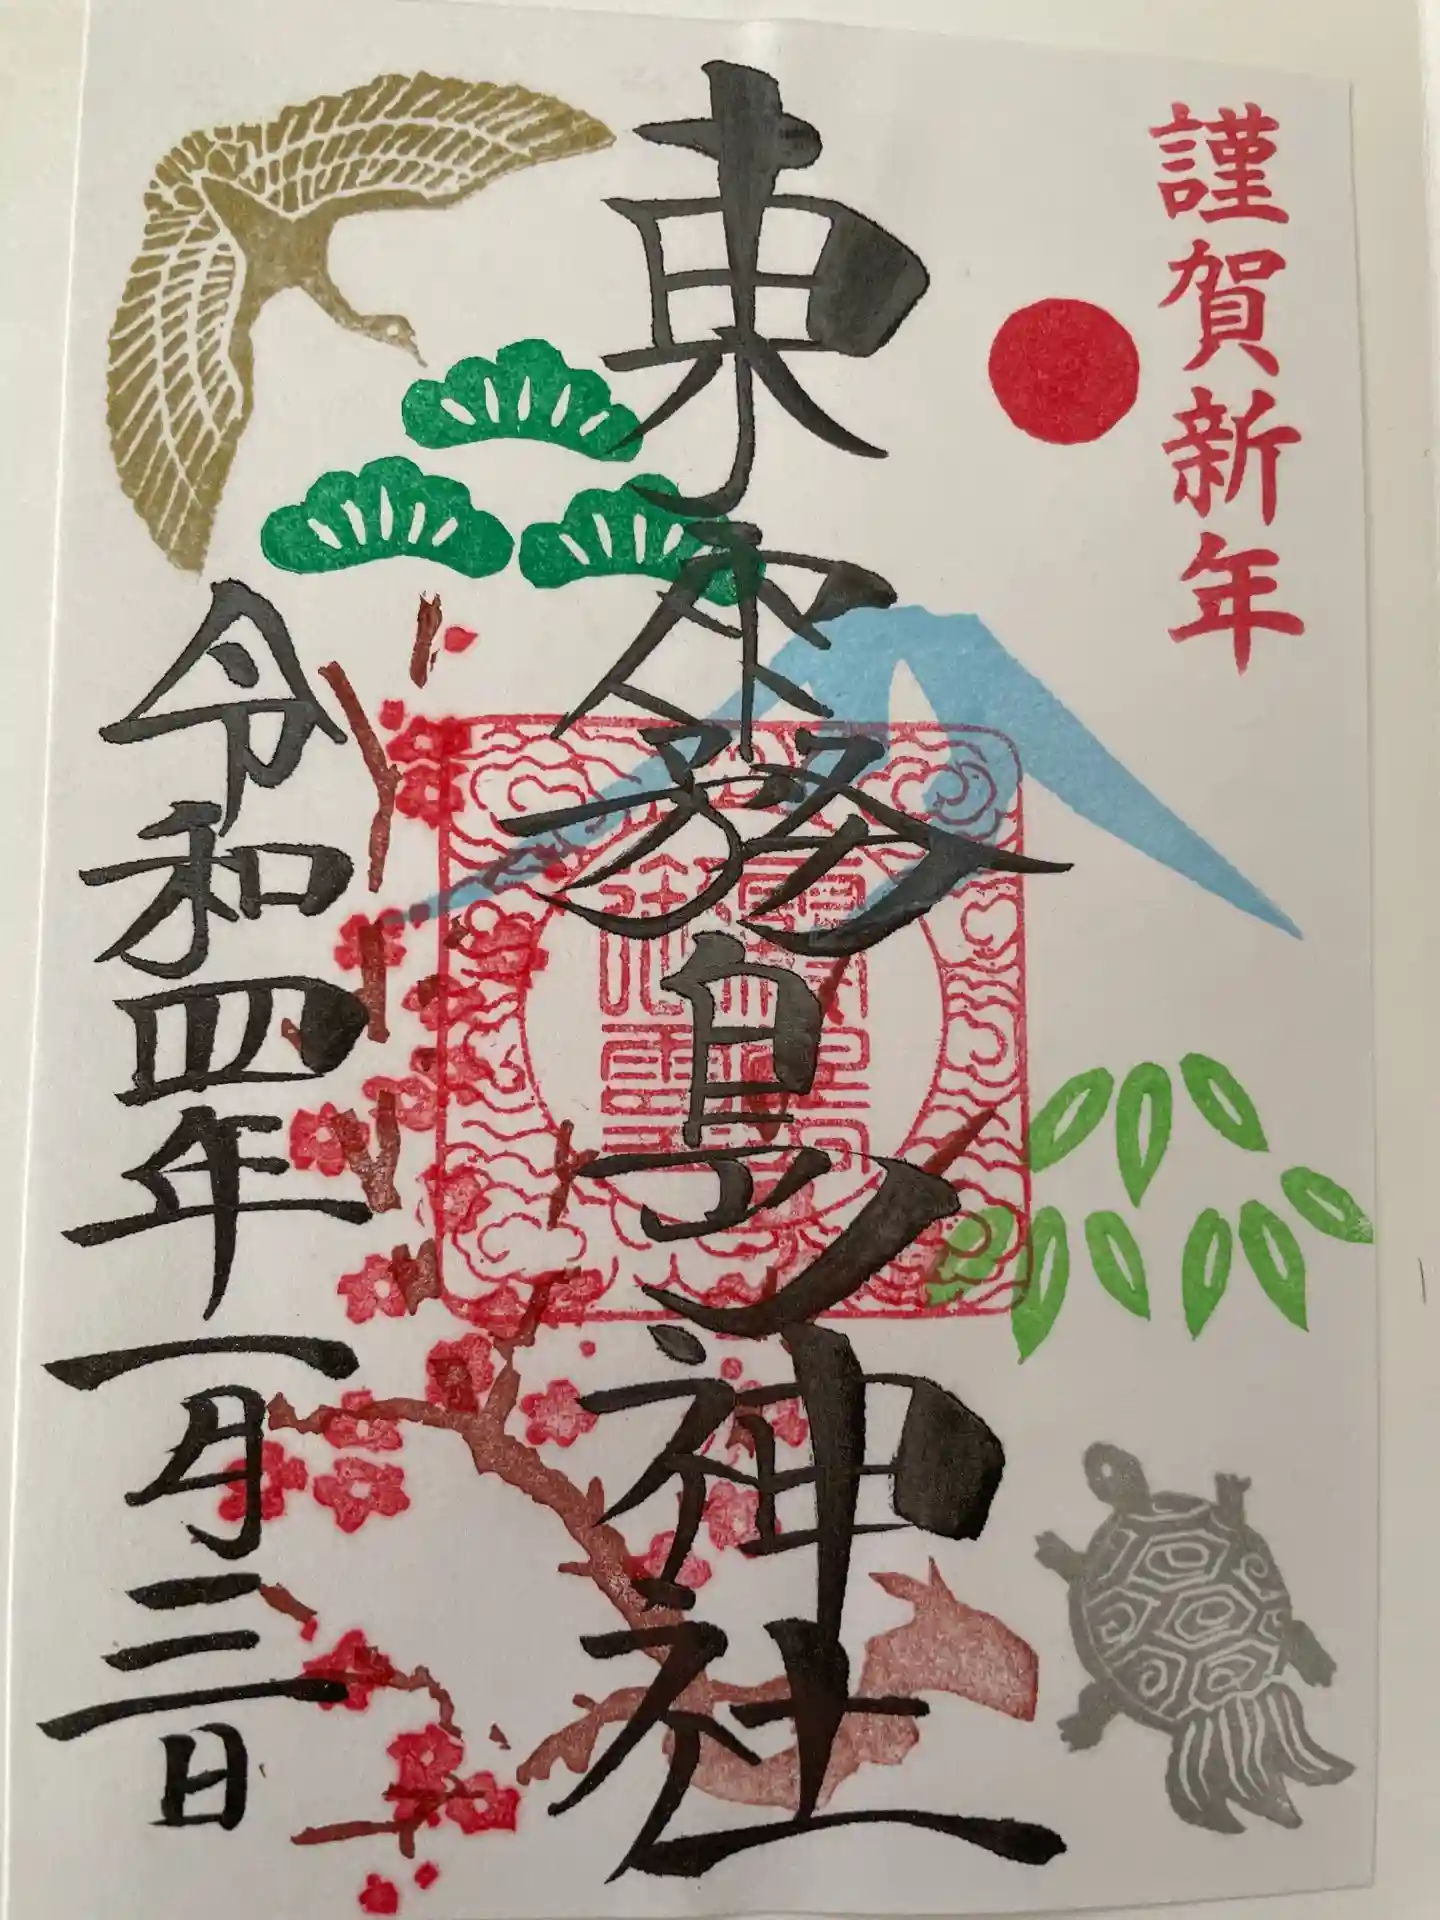 謹賀新年
東霧島神社
令和四年一月三日